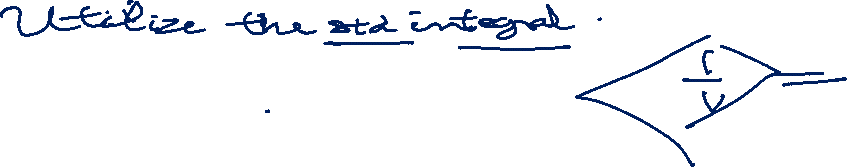 Utilize the std integral.